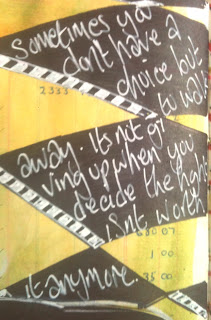 Sometimes you
don't have a
choice but
to walk
2333
away. Its not gi
ving up when you
decide the fight
isnt worth
1 00
it anymore.
35 00